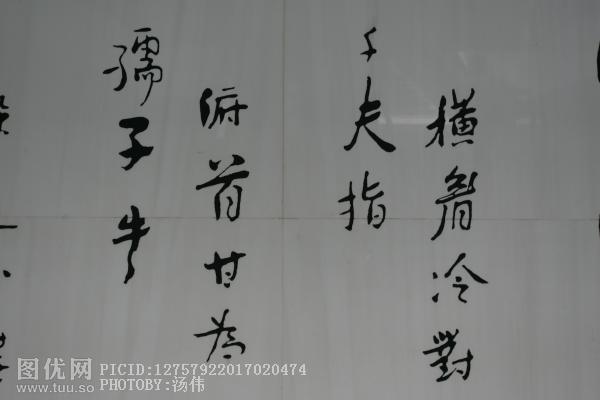 横眉冷對
千夫指
俯首甘为
孺子牛
图优网
www.tuu.so
PICID:12757922017020474
PHOTOBY:汤伟